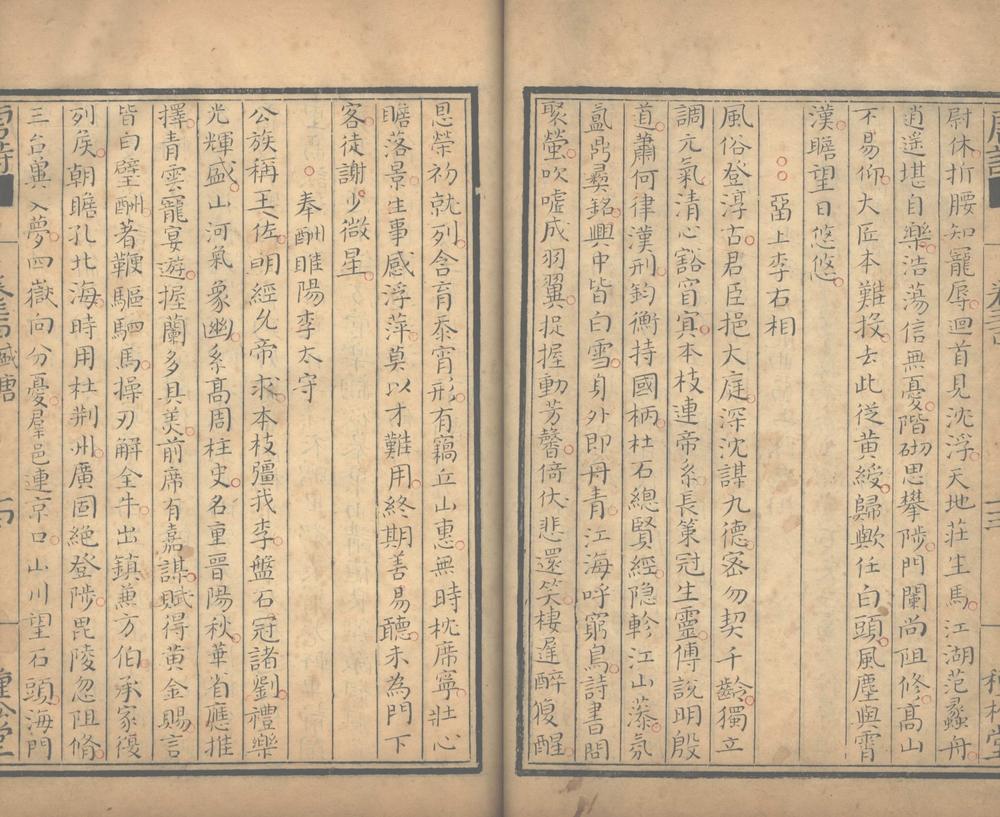 尉休折腰知寵辱迴首見沈浮天地莊生馬江湖范蠡舟
逍遙堪自樂浩蕩信無憂階砌思攀陟門闌尚阻修高山
不易仰大匠本難投去此從黃綬歸歟任白頭風塵與霄
漢瞻望日悠悠
留上李右相
風俗登淳古君臣挹大庭深沈謀九德密勿契千齡獨立
調元氣清心豁窅冥本枝連帝系長策冠生靈傅說明殷
道蕭何律漢刑鈞衡持國柄柱石總賢經隐軫江山藻氛
氳鼎彝銘興中皆白雪身外即丹青江海呼窮鳥詩書問
聚螢吹噓成羽翼提握動芳馨倚伏悲還笑棲遲醉復醒
恩榮初就列含育忝宵形有竊丘山惠無時枕席寧壯心
瞻落景生事感浮萍莫以才難用終期善易聽未為門下
客徒謝少微星
奉酬睢陽李太守
公族稱王佐朝經允帝求本枝彊我李盤石冠諸劉禮樂
光輝盛山河氣象幽系高周柱史名重晉陽秋華省應推
擇青雲寵宴遊握蘭多具美前席有嘉謀賦得黃金賜言
皆白璧酬著鞭驅駟馬操刃解全牛出鎮兼方伯承家復
列侯朝瞻孔北海時用杜荆州廣固絕登陟毘陵忽阻脩
三台冀入夢四嶽尚分憂羣邑連京口山川望石頭海門